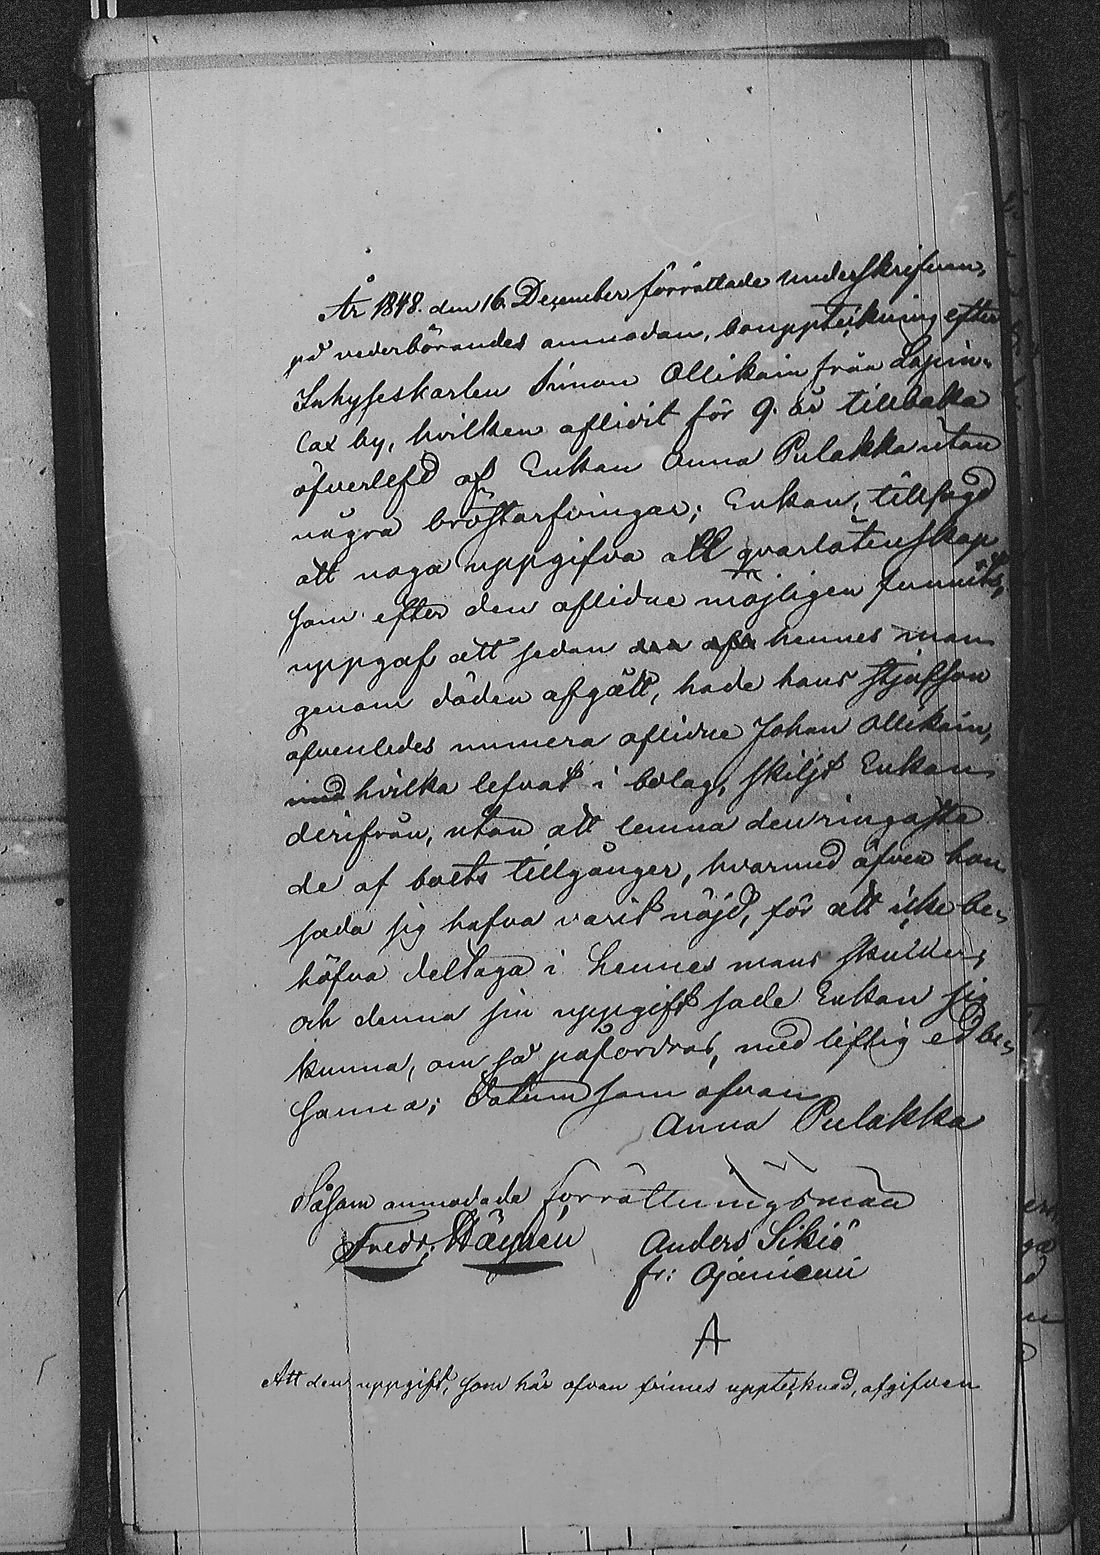 År 1848. den 16. December förrättade underskrifven,
på vederbörandes anmodan, bouppteckning efter
Inhyseskarlen Simon Ollikain från Lapin-
lax by, hvilken aflidit för 9. år tillbaka
öfverlefd af Enkan Anna Pulakka utan
några bröstarfvingar; Enkan, tillsagd
att noga uppgifva all qvarlåtenskap
som efter den aflidne möjligen funnits,
uppgaf att sedan hennes man
genom döden afgått, hade hans stjufson
äfvenledes numera aflidne Johan Ollikain,
med hvilka lefvat i bolag, skiljt Enkan
derifrån, utan att lemna den ringaste
de af boets tillgångar, hvarmed äfven hon
sade sig hafva varit nöjd, för att icke be-
höfva deltaga i hennes mans skulder,
och denna sin uppgift sade Enkan sig
kunna, om så påfordras, med liflig ed be-
sanna; Datum som ofvan
Anna Pulakka
Såsom anmodade förrättningsmän
Fredr. Häyrén Anders Sikiö
fr: Ojaniemi
A
Att den uppgift, som här ofvan finnes upptecknad, afgifven